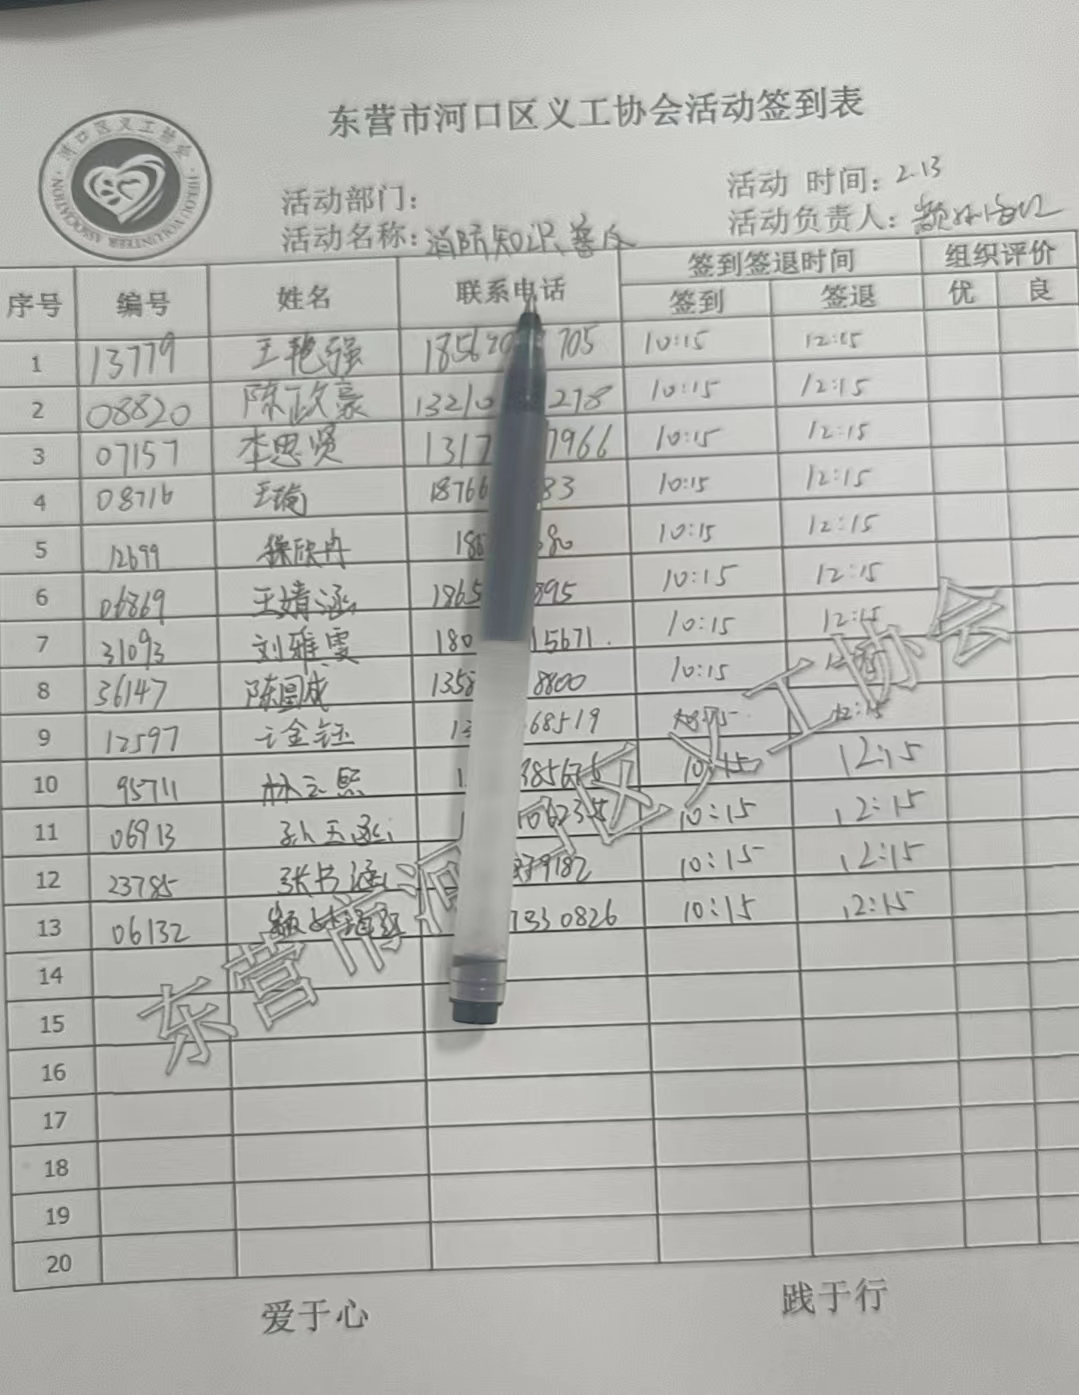 东营市河口区义工协会活动签到表
河口区义工协会
HEKOU VOLUNTEER ASSOCIATION
活动部门：
活动 时间：2.13
活动名称：消防知识
活动负责人：
序号 编号 姓名 联系电话 签到签退时间 组织评价
签到 签退 优 良
1 13779 王艳强 185670 705 10:15 12:15
2 08820 陈政豪 13210 278 10:15 12:15
3 07157 李思贤 1317 7966 10:15 12:15
4 08716 王瑜 18766 83 10:15 12:15
5 12699 徐欣冉 180 10:15 12:15
6 06869 王婧涵 1865 895 10:15 12:15
7 31093 刘雅雯 180 15671 10:15 12:15
8 36147 陈国成 1358 8800 10:15
9 12597 金钰 68519 12:15
10 95711 林云熙 10:15 12:15
11 06913 孙玉涵 10:15 12:15
12 23785 张书涵 79182 10:15 12:15
13 06132 7330826 10:15 12:15
14
15
16
17
18
19
20
东营市河口区义工协会
爱于心 践于行